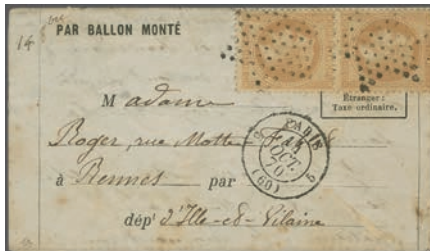 14
PAR BALLON MONTÉ
Étranger :
Taxe ordinaire.
Madame
Roger, rue Motte
à Rennes par
dépt d'Ille-et-Vilaine
PARIS
OCT.
70
(60)